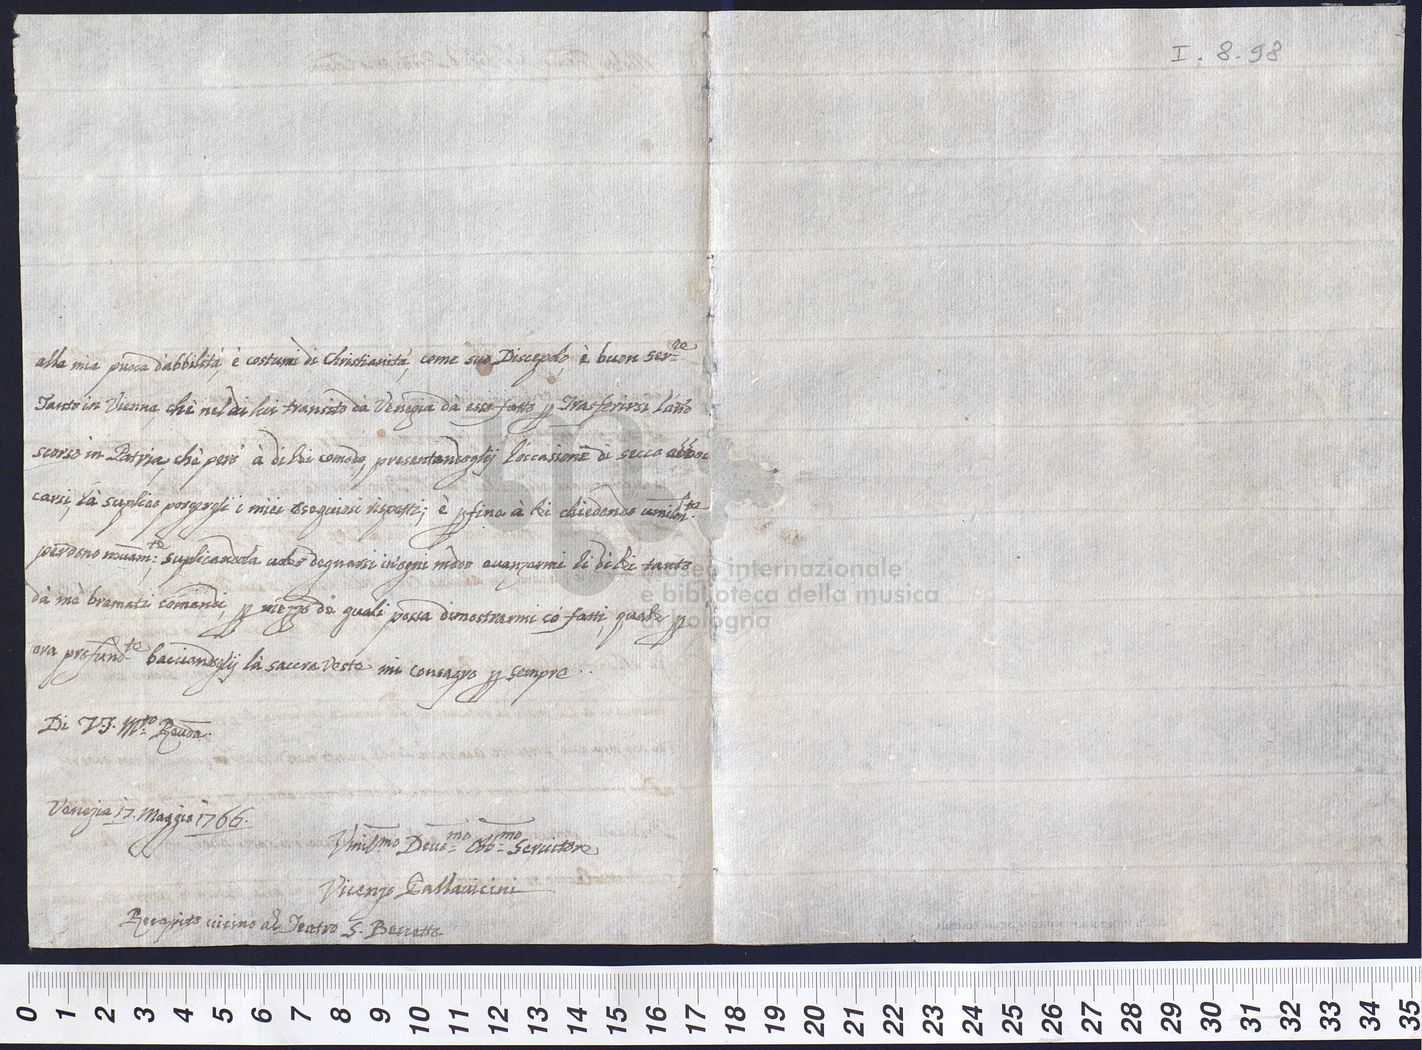 I. 8. 98
alla mia puoca d'abbilità, è costumi di Christianità, come suo Discepolo, è buon ser.re
Tanto in Vienna, chè nel di lui transito dà Venezia dà esso fatto p Trasferirsi l'año
scorso in Patria, chè però à di lei comodo, presentandoglij l'occasione di secco abboc
carsi, là suplico porgergli i miei osequiosi rispetti; è p fine à lei chiedendo umilm.te
perdono nuam.te suplicandola degnarsi in ogni modo auanzarmi li di lei tanto
dà me bramati comandi, p mezzo de quali possa dimostrarmi có fatti, quale p
ora profund.te bacciandoglij là saccra veste mi consagro p sempre.
Di V.S. M.to Reuda.
Venezia 17. Maggio 1766.
Vmil.mo Deu.mo Obb.mo Seruitore
Vicenzo Pallauicini
Recapito uicino al Teatro S. Benetto.
museo internazionale
e biblioteca della musica
di bologna
0 1 2 3 4 5 6 7 8 9 10 11 12 13 14 15 16 17 18 19 20 21 22 23 24 25 26 27 28 29 30 31 32 33 34 35